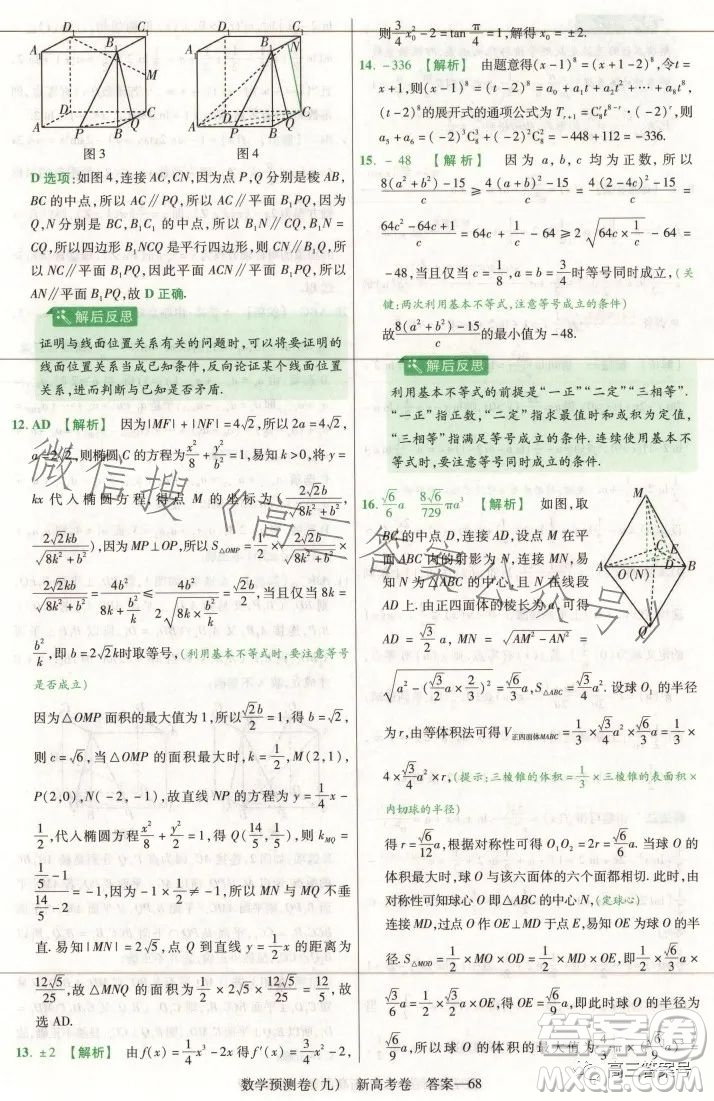 D选项:如图4,连接AC,CN,因为点P,Q分别是棱AB,
BC的中点,所以AC∥PQ,所以AC∥平面B₁PQ,因为
点N,Q分别是棱BC,B₁C₁的中点,所以B₁N∥CQ,B₁N=
CQ,所以四边形B₁NCQ是平行四边形,所以CN∥B₁Q,
所以CN∥平面B₁PQ,因此平面ACN∥平面B₁PQ,所以
AN∥平面B₁PQ,故D正确.
解后反思
证明与线面位置关系有关的问题时,可以将要证明的
线面位置关系当成已知条件,反向论证某个线面位置
关系,进而判断与已知是否矛盾.
12. AD 【解析】 因为|MF|+|NF|=4√2,所以2a=4√2,
a=2√2,则椭圆C的方程为x²/8+y²/b²=1.易知k>0,将y=
kx代入椭圆方程,得点M的坐标为(2√2b/√(8k²+b²),
2√2kb/√(8k²+b²)),因为MP⊥OP,所以S△OMP=1/2×2√2b/√(8k²+b²)×
2√2kb/√(8k²+b²)=4b²/(8k+b²/k)≤4b²/(2√(8k×b²/k))=√2b/2,当且仅当8k=
b²/k,即b=2√2k时取等号,(利用基本不等式时,要注意等号
是否成立)
因为△OMP面积的最大值为1,所以√2b/2=1,得b=√2,
则c=√6,当△OMP的面积最大时,k=1/2,M(2,1),
P(2,0),N(-2,-1),故直线NP的方程为y=1/4x-
1/2,代入椭圆方程x²/8+y²/2=1,得Q(14/5,1/5),则kMQ=
(1/5-1)/(14/5-2)=-1,所以直线MN与MQ不垂
直.易知|MN|=2√5,点Q到直线y=1/2x的距离为
12√5/25,故△MNQ的面积为1/2×2√5×12√5/25=12/5,故
选AD.
13. ±2 【解析】 由f(x)=1/4x³-2x得f′(x)=3/4x²-2,
则3/4x₀²-2=tanπ/4=1,解得x₀=±2.
14. -336 【解析】 由题意得(x-1)⁸=(x+1-2)⁸,令t=
x+1,则(x-1)⁸=(t-2)⁸=a₀+a₁t+a₂t²+…+a₈t⁸,
(t-2)⁸的展开式的通项公式为Tᵣ₊₁=C₈ʳt⁸⁻ʳ·(-2)ʳ,则
a₅+a₆=(-2)³C₈³+(-2)²C₈²=-448+112=-336.
15. -48 【解析】 因为a,b,c均为正数,所以
(8(a²+b²)-15)/c≥(4(a+b)²-15)/c=(4(2-4c)²-15)/c=
(64c²-64c+1)/c=64c+1/c-64≥2√(64c×1/c)-64=
-48,当且仅当c=1/8,a=b=3/4时等号同时成立,(关
键:两次利用基本不等式,注意等号成立的条件)
故(8(a²+b²)-15)/c的最小值为-48.
解后反思
利用基本不等式的前提是“一正”“二定”“三相等”.
“一正”指正数,“二定”指求最值时和或积为定值,
“三相等”指满足等号成立的条件.连续使用基本不
等式时,要注意等号同时成立的条件.
16. √6/6a 8√6/729πa³ 【解析】 如图,取
BC的中点D,连接AD,设点M在平
面ABC内的射影为N,连接MN,易
知N为△ABC的中心,且N在线段
AD上.由正四面体的棱长为a,可得
AD=√3/2a,MN=√(AM²-AN²)=
√(a²-(√3/2a×2/3)²)=√6/3a,S△ABC=√3/4a².设球O₁的半径
为r,由等体积法可得V正四面体MABC=1/3×√3/4a²×√6/3a=1/3×
4×√3/4a²×r,(提示:三棱锥的体积=1/3×三棱锥的表面积×
内切球的半径)
得r=√6/12a,根据对称性可得O₁O₂=2r=√6/6a.当球O的
体积最大时,球O与该六面体的六个面都相切.由
对称性可知球心O即△ABC的中心N,(定球心)
连接MD,过点O作OE⊥MD于点E,易知OE为球O的
半径.S△MOD=1/2×MO×OD=1/2×MD×OE,即1/2×√6/3a×
√3/6a=1/2×√3/2a×OE,得OE=√6/9a,所以此时球O的半径为
√6/9a,所以球O的体积的最大值为4/3π×(√6/9a)³=
图3
图4
数学预测卷(九) 新高考卷 答案—68
微信搜《高三答案公众号》
答案圈
MXQE.COM
高三答案号